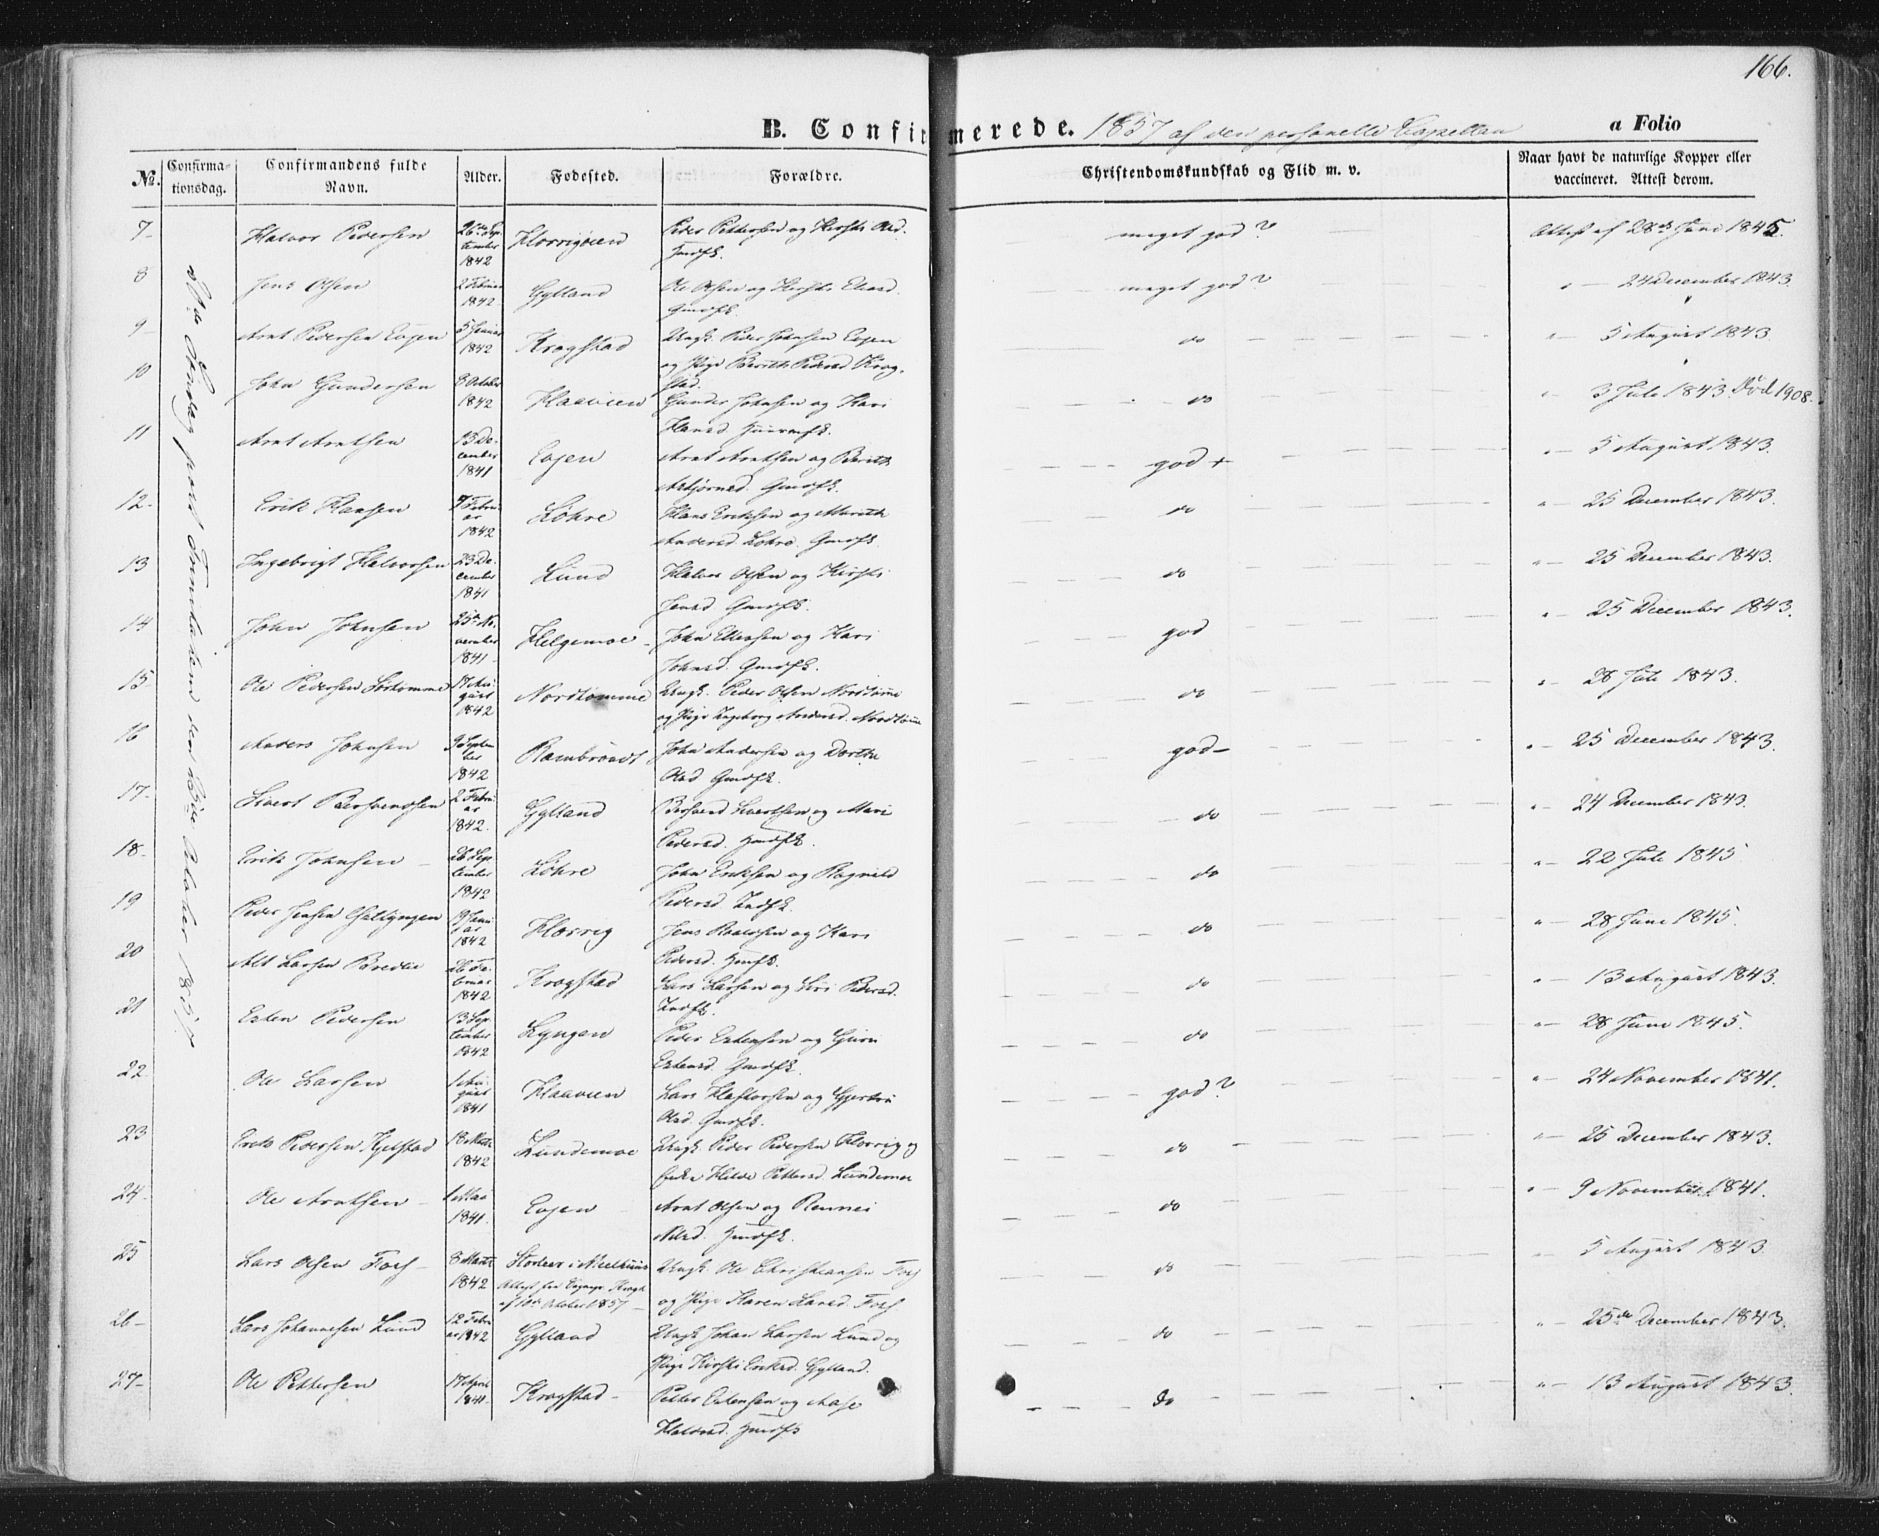 166.
B. Confirmerede. 1857 af den personelle Capellan a Folio
№. Confirmationsdag. Confirmandens fulde Navn. Alder. Fødested. Forældre. Christendomskundskab og Flid m. v. Naar havt de naturlige Kopper eller vaccineret. Attest derom.
7 Halvor Pedersen 26de September 1842 Horrigøien Peder Pettersen og Kirsti Olsd. Gmdfk. meget god? Attest af 28de Juni 1845.
8 Jens Olsen 2 Februar 1842 Gylland Ole Olsen og Kirsti Gmdfk. meget god? " 24 December 1843.
9 Arnt Pedersen Evjen 5 Januar 1842 Krogstad Ungk. Peder Johnsen Evjen og Pige Berith Pedersd. Krogstad. do " 5 August 1843.
10 John Gundersen 8 October 1842 Haavien Gunder Johnsen og Kari Hansd. do " 3 Juli 1843. Død 1908.
11 Arnt Arntsen 13 December 1841 Evjen Arnt Arntsen og Berith Asbjørnsd. Gmdfk. god + " 5 August 1843.
12 Erik Hansen 7 Februar 1842 Løhre Hans Eriksen og Marith Andersd. Løhre. Gmdfk. do " 25 December 1843.
13 Ingebrigt Halvorsen 23 December 1841 Lund Halvor Olsen og Kirsti Jensd. Gmdfk. do " 25 December 1843.
14 John Johnsen 25de November 1841 Helgemoe John Ellevsen og Kari Johnsd. Gmdfk. god " 25 December 1843.
15 Ole Pedersen Sørtømme 17 August 1842 Nordtømme Ungk. Peder Olsen Nordtømme og Pige Ingeborg Andersd. Nordtømme do " 28 Juli 1843.
16 Anders Johnsen 9 September 1842 Rambraadt John Andersen og Dorthe Olsd. Gmdfk. god - " 25 December 1843.
17 Sivert Bersvendsen 2 Februar 1842. Gylland Bersvend Sivertsen og Mari Pedersd. Hmdfk. do " 24 December 1843.
18 Erik Johnsen 26 September 1842 Løhre John Eriksen og Ragnild Pedersd. Indfk. do " 22 Juli 1845
19 Peder Jensen 19 Januar 1842 Horrig Jens Roaldsen og Kari Pedersd. Hmdfk. do " 28 Juni 1845.
20 Larsen Bredlie 26 Februar 1842 Krogstad Lars Larsen og Siri Pedersd. Indfk. do " 13 August 1843.
21 Esten Pedersen 13 September 1842 Lyngen Peder Estensen og Guru Estensd. Gmdfk. do " 28 Juni 1845.
22 Ole Larsen 1 August 1841 Haavien Lars og Gjertru Olsd. Gmdfk. god? " 24 November 1841.
23 Erik Pedersen Kjelstad 18 Marts 1842 Lundemoe Ungk. Peder Pedersen Horrig og Enke Pettersd. Lundemoe do " 25 December 1843.
24 Ole Arntsen 1 Mai 1841. Evjen Arnt Olsen og Nilsd. Hmdfk. do " 9 November 1841.
25 Lars Olsen Fors 8 Marts 1842 i Meelhuus Attest fra af 10de October 1857 Ungk. Ole Christiansen Fors og Pige Karen Larsd. Fors do " 5 August 1843
26 Lars Johannesen Lund 12 Februar 1842 Gylland Ungk. Johan Larsen Lund og Pige Kirsti Eriksd. Gylland. do " 25de December 1843.
27 Ole Pettersen 17 April 1841. Krogstad Petter Estensen og Aase Halvsd. Hmdfk do " 13 August 1843.